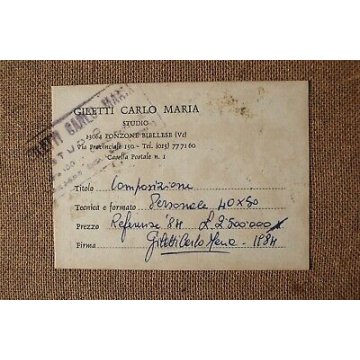 GILETTI CARLO MARIA
STUDIO
13064 PONZONE BIELLESE (Vc)
Via Provinciale 190 - Tel. (015) 77 71 60
Casella Postale n. 1
GILETTI CARLO MARIA
Titolo Composizione
Tecnica e formato Personale 40x50
Prezzo Referenze '84 £ 2.500.000
Firma Giletti Carlo Maria 1984